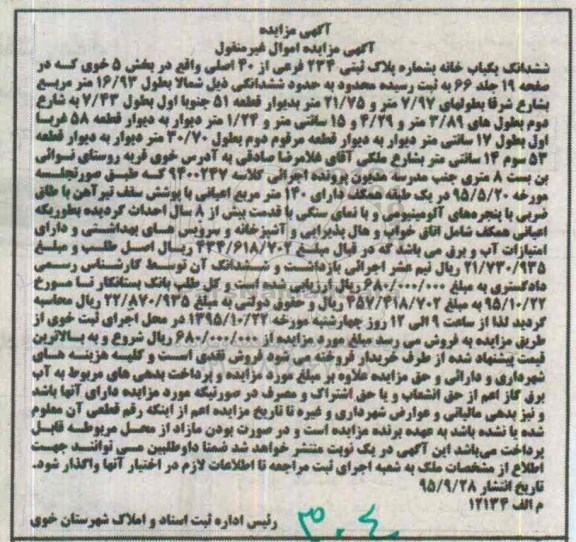 آگهی مزایده
آگهی مزایده اموال غیرمنقول
ششدانگ یکباب خانه بشماره پلاک ثبتی ۲۳۴ فرعی از ۴۰ اصلی واقع در بخش ۵ خوی کـه در
صفحه ۱۹ جلد ۶۶ به ثبت رسیده محدود به حدود ششدانگی ذیل شمالا بطول ۱۶/۹۳ متر مربـع
بشارع شرقا بطولهای ۷/۹۷ متر و ۲۱/۷۵ متر بدیوار قطعه ۵۱ جنوبا اول بطول ۷/۴۳ به شارع
دوم بطول های ۳/۸۹ متر و ۴/۲۹ و ۱۵ سانتی متر و ۱/۲۴ متر دیوار به دیوار قطعه ۵۸ غربـا
اول بطول ۱۷ سانتی متر دیوار به دیوار قطعه مرقوم دوم بطول ۳۰/۷۰ متر دیوار به دیوار قطعه
۵۳ سوم ۱۴ سانتی متر بشارع ملکی آقای غلامرضا صادقی به آدرس خوی قریه روستای نـوائی
بن بست ۸ متری جنب مدرسه مدیون پرونده اجرائی کلاسه ۹۴۰۰۲۳۷ کـه طبـق صورتجلسـه
مورخه ۹۵/۵/۲۰ در یک طبقه همکف دارای ۱۴۰ متر مربع اعیانی با پوشش سقف تیرآهن با طاق
ضربی با پنجره‌های آلومینیومی و با نمای سنگی با قدمت بیش از ۸ سال احداث گردیده بطوریکه
اعیانی همکف شامل اتاق خواب و هال پذیرایی و آشپزخانه و سرویس هـای بهداشـتی و دارای
امتیازات آب و برق می باشد که در قبال مبلـغ ۴۳۴/۶۱۸/۷۰۲ ریـال اصـل طلـب و مبلـغ
۲۱/۷۳۰/۹۳۵ ریال نیم عشر اجرائی بازداشت و ششدانگ آن توسـط کارشـناس رسـمی
دادگستری به مبلغ ۶۸۰/۰۰۰/۰۰۰ ریال ارزیابی شده است و کل طلب بانک بستانکار تـا مـورخ
۹۵/۱۰/۲۲ به مبلغ ۴۵۷/۴۱۸/۷۰۲ ریال و حقوق دولتی به مبلغ ۲۲/۸۷۰/۹۳۵ ریال محاسبه
گردید لذا از ساعت ۹ الی ۱۲ روز چهارشنبه مورخه ۱۳۹۵/۱۰/۲۲ در محل اجرای ثبت خوی از
طریق مزایده به فروش می رسد مبلغ مورد مزایده از ۶۸۰/۰۰۰/۰۰۰ ریال شروع و به بـالاترین
قیمت پیشنهاد شده از طرف خریدار فروخته می شود فروش نقدی اسـت و کلیـه هزینـه هـای
شهرداری و دارائی و حق مزایده علاوه بر مبلغ مورد مزایده و پرداخت بدهی های مربوط به آب
برق گاز اعم از حق انشعاب و یا حق اشتراک و مصرف در صورتیکه مورد مزایده دارای آنها باشد
و نیز بدهی مالیاتی و عوارض شهرداری و غیره تا تاریخ مزایده اعم از اینکه رقم قطعی آن معلوم
شده یا نشده باشد به عهده برنده مزایده است و در صورت بودن مازاد از محـل مربوطـه قابـل
پرداخت می‌باشد این آگهی در یک نوبت منتشر خواهد شد ضمنا داوطلبین مـی تواننـد جهـت
اطلاع از مشخصات ملک به شعبه اجرای ثبت مراجعه تا اطلاعات لازم در اختیار آنها واگذار شود.
تاریخ انتشار ۹۵/۹/۲۸
م الف ۱۲۱۳۴
رئیس اداره ثبت اسناد و املاک شهرستان خوی